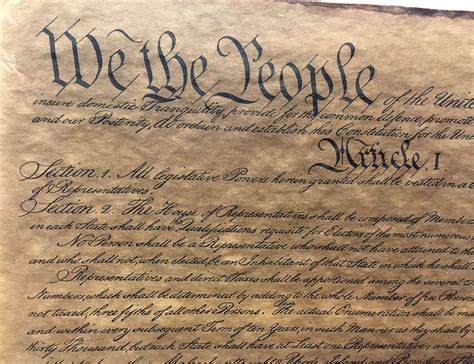 We the People of the Unit
insure domestic Tranquility, provide for the common defence, promote
and our Posterity, do ordain and establish this Constitution for the Unit
Article. I.
Section. 1. All legislative Powers herein granted shall be vested in a
of Representatives.
Section. 2. The House of Representatives shall be composed of Member
in each State shall have the Qualifications requisite for Electors of the most numerous
No Person shall be a Representative who shall not have attained to the
and who shall not, when elected, be an Inhabitant of that State in which he sha
Representatives and direct Taxes shall be apportioned among the several St
Numbers, which shall be determined by adding to the whole Number of free Person
not taxed, three fifths of all other Persons. The actual Enumeration shall be ma
and within every subsequent Term of ten Years, in such Manner as they shall by
thirty Thousand, but each State shall have at least one Representative; and u